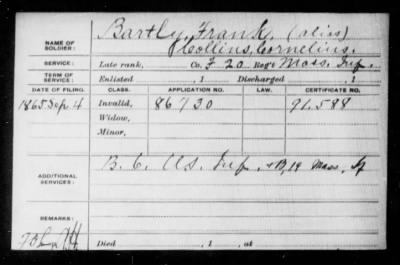 Bartly, Frank. (alias)
NAME OF SOLDIER: Collins, Cornelius.
SERVICE: Late rank, Co. F 20 Reg't Mass. Inf.
TERM OF SERVICE: Enlisted , 1 Discharged , 1
DATE OF FILING. CLASS. APPLICATION NO. LAW. CERTIFICATE NO.
1865 Sep. 4 Invalid, 86730 91.588
Widow,
Minor,
ADDITIONAL SERVICES: B. C. US. Inf. & B, 19 Mass. If
REMARKS:
Died , 1 , at